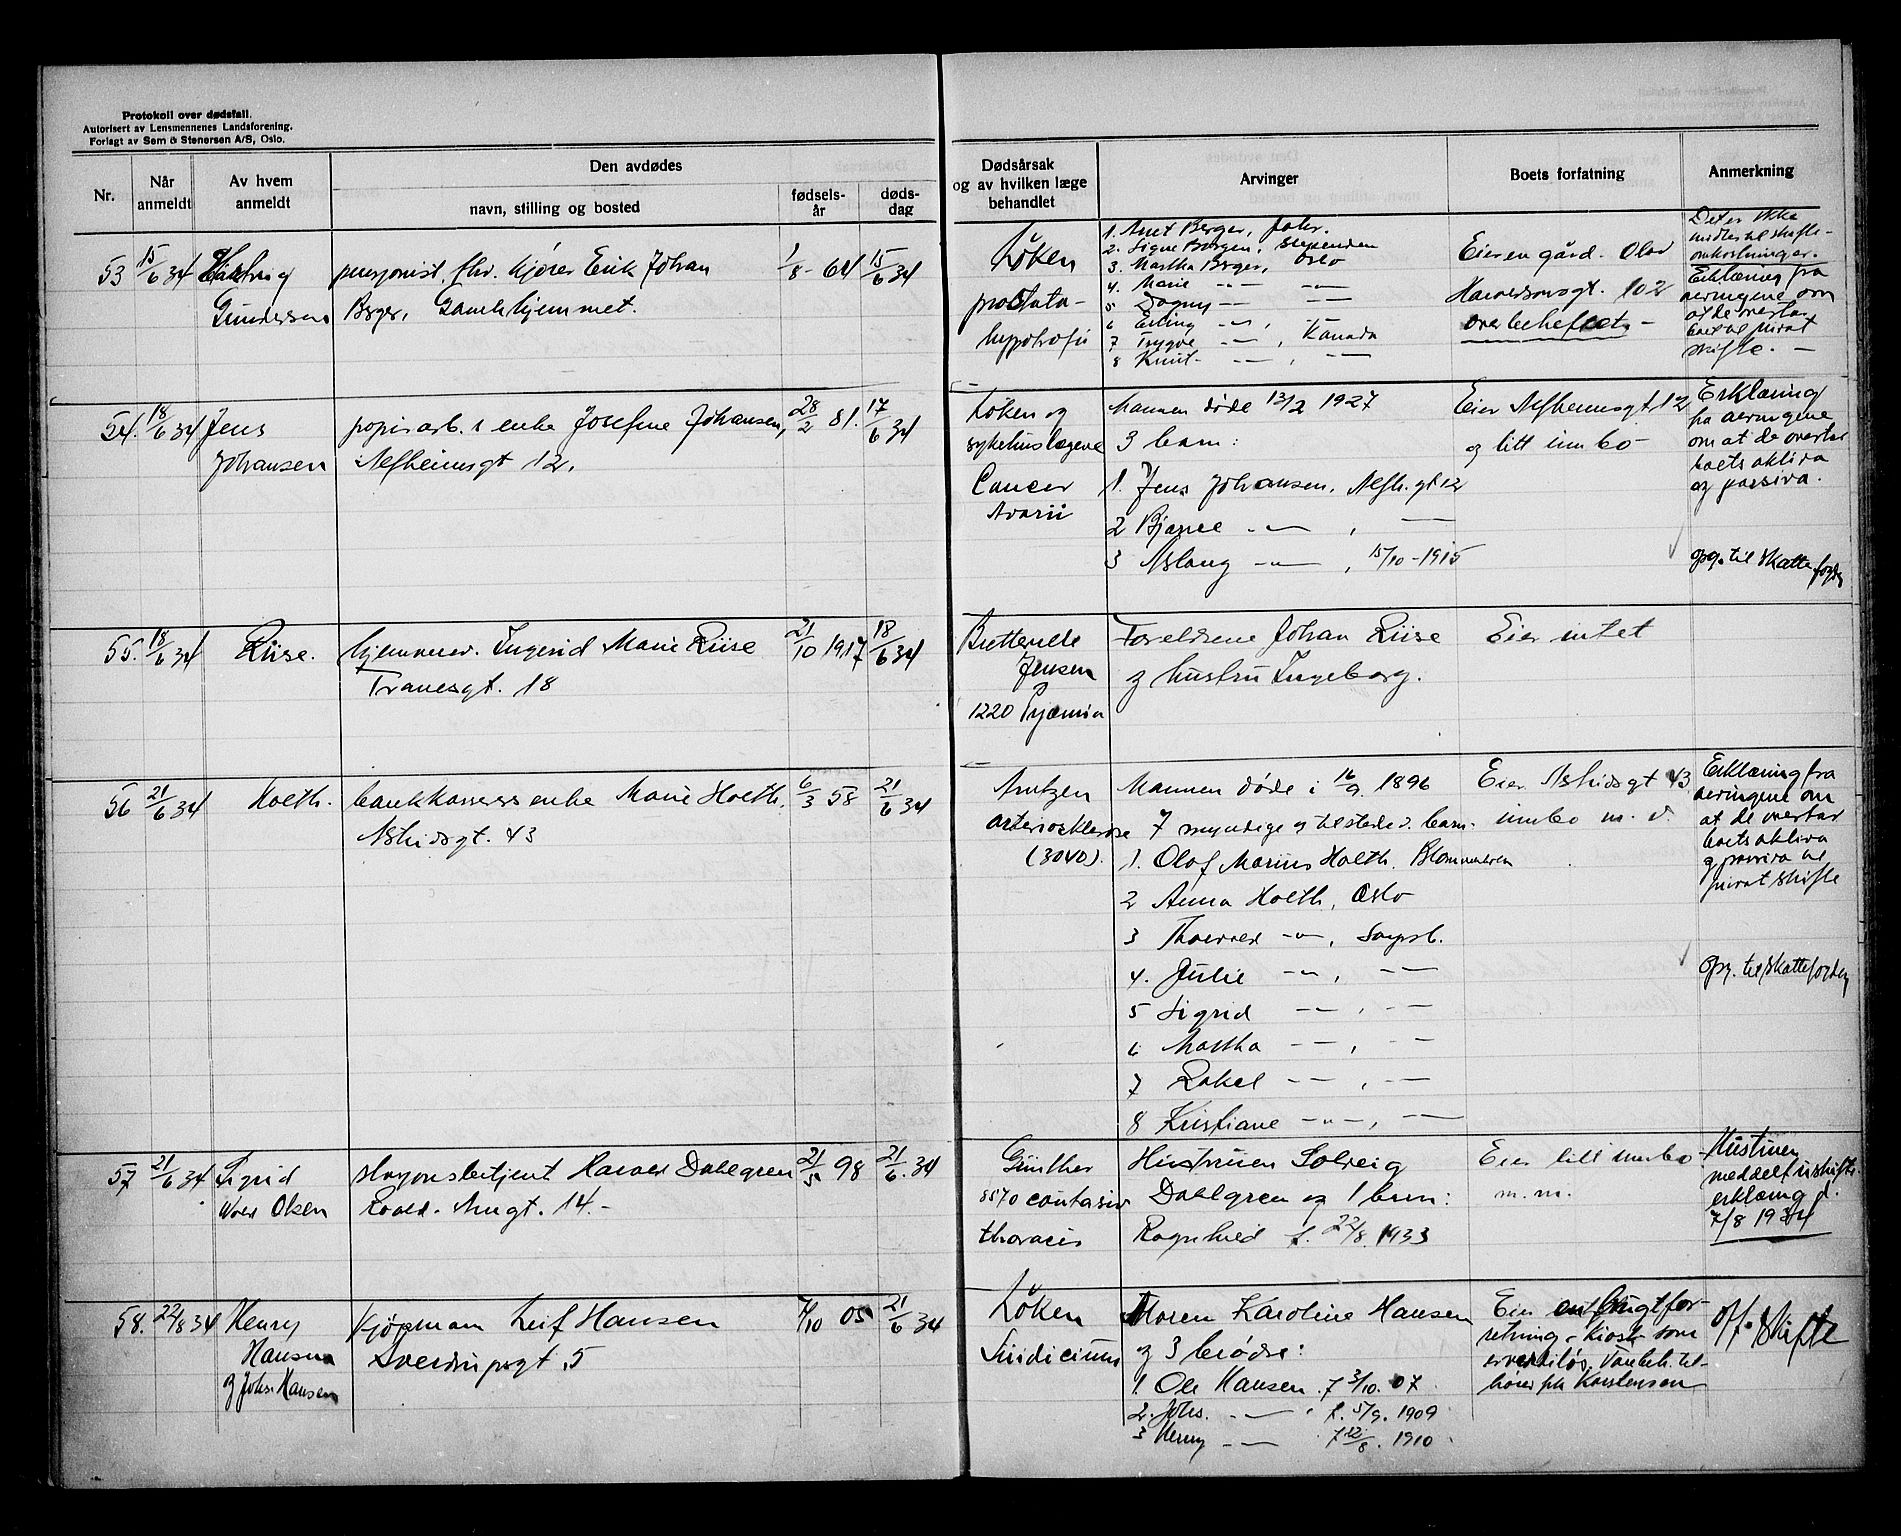 Protokoll over dødsfall.
Autorisert av Lensmennenes Landsforening.
Forlagt av Sem & Stenersen A/S, Oslo.
Nr.
Når anmeldt
Av hvem anmeldt
Den avdødes
navn, stilling og bosted
fødsels-år
døds-dag
Dødsårsak og av hvilken læge behandlet
Arvinger
Boets forfatning
Anmerkning
53 15/6 34
Gundersen
pensjonist, fhv. kjører Erik Johan
Berger, Gamlehjemmet.
1/8 - 64 15/6 34
Løken
prostata-
hypotrofi
1. Anet Berger,
2. Signe Borgen, Slependen
3. Martha Berger, Oslo
4. Marie -"- -"-
5 Dagny -"- -"-
6 Erling -"-,
7 Trygve -"-, Kanada
8 Knut -"-, -"-
Eier en gård. Olav
Haraldsonsgt. 102
overbeheftet -
Det er ikke
midler til skifte-
omkostninger.
Erklæring fra
arvingene om
at de overtar
boet til privat
skifte. -
54. 18/6 34 Jens
Johansen
papirarb.s enke Josefine Johansen,
Alfheimsgt 12.
28/2 81. 17/6 34
Løken og
sykehuslægene
Cancer
ovarii
Mannen døde 13/2 1927
3 barn:
1. Jens Johansen, Alfh.gt 12
2 Bjarne -"-, -"-
3 Aslaug -"-, 15/10 - 1915
Eier Alfheimsgt. 12
og litt innbo -
Erklæring
fra arvingene
om at de overtar
boets aktiva
og passiva.
opg. til skatte
55. 18/6 34 Riise.
hjemmev. Ingerid Marie Riise
Tranesgt. 18
21/10 1917 18/6 34
Jensen
1220 Pyæmia
Foreldrene Johan Riise
og hustru Ingeborg.
Eier intet
56 21/6 34 Holth.
bankkasserers enke Marie Holth.
Astridsgt. 43
6/3 58 21/6 34
Arntzen
arteriosklerose
(3040).
Mannen døde i 16/9 1896
7 myndige og tilstedev. barn.
1. Olaf Marius Holth.
2 Anna Holth, Oslo
3 Thorvald -"-, Sarpsb.
4. Julie -"-, -"-
5 Sigrid -"-, -"-
6 Martha -"-, -"-
7 Rakel -"-, -"-
8 Kristiane -"-, -"-
Eier Astridsgt 43,
innbo m. v.
Erklæring fra
arvingene om
at de overtar
boets aktiva
og passiva til
privat skifte
opg. til skatteforden
57 21/6 34 Sigrid
Wold Olsen
Harald Dahlgren
Roald Am.gt. 14. -
21/5 98 21/6. 34
Günther
8570 contusio
thoracis
Hustruen Solveig
Dahlgren og 1 barn:
Ragnhild f. 22/8. 1933
Eier litt innbo
m.m.
Hustruen
meddelt uskifte-
erklæring d.
7/8 1934
58. 22/8 34 Henry
Hansen
og Johs. Hansen
Kjøpmann Leif Hansen
Sverdrupsgt. 5
7/10 05 21/6 34
Løken
Suicidium
Moren Karoline Hansen
og 3 brødre:
1. Ole Hansen. f 3/10. 07
2. Johs. -"- f. 5/9. 1909
3 Henry -"- f 12/8. 1910
Eier en frugtfor-
retning i kiosk som
er verdiløs.
Karstensen
Off. skifte